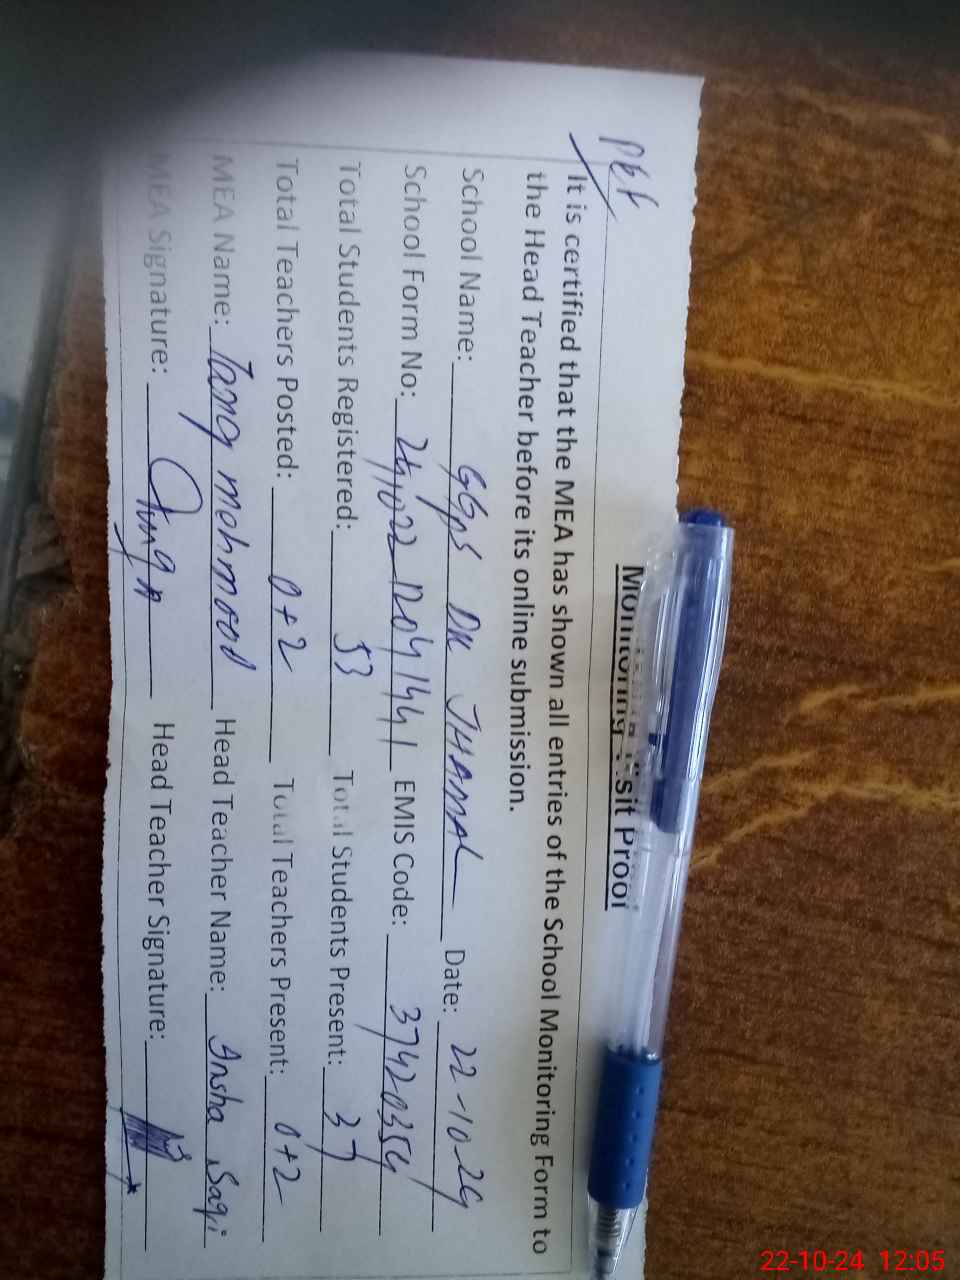 PEF
Monitoring Visit Proof
It is certified that the MEA has shown all entries of the School Monitoring Form to
the Head Teacher before its online submission.
School Name: GGPS DK JHAMAL Date: 22-10-24
School Form No: EMIS Code: 37420354
Total Students Registered: 53 Total Students Present: 37
Total Teachers Posted: 0+2 Total Teachers Present: 0+2
MEA Name: Tariq mehmood Head Teacher Name: Insha Saqi
MEA Signature: Head Teacher Signature:
22-10-24 12:05